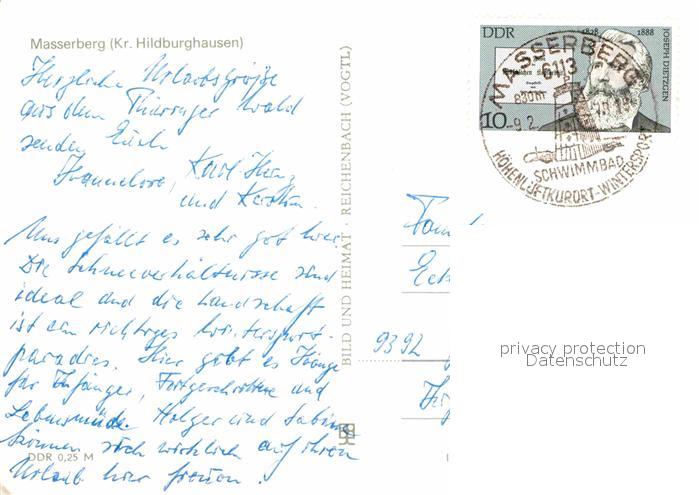 Masserberg (Kr. Hildburghausen)
Herzliche Urlaubsgrüße
aus dem Thüringer Wald
senden Euch
Hannelore, Karl Heinz
und Kerstin.
Uns gefällt es sehr gut hier.
Die Schneeverhältnisse sind
ideal und die Landschaft
ist ein richtiges Wintersport-
paradies. Hier gibt es Hänge
für Anfänger, Fortgeschrittene und
Lebensmüde. Holger und Sabine
können sich wirklich auf ihren
Urlaub hier freuen.
DDR 0,25 M
BILD UND HEIMAT · REICHENBACH (VOGTL)
DDR
1828
1888
JOSEPH DIETZGEN
10
MASSERBERG
6113
830m
-9.2.
SCHWIMMBAD
HÖHENLUFTKURORT-WINTERSPORT
Fam
9392
privacy protection
Datenschutz